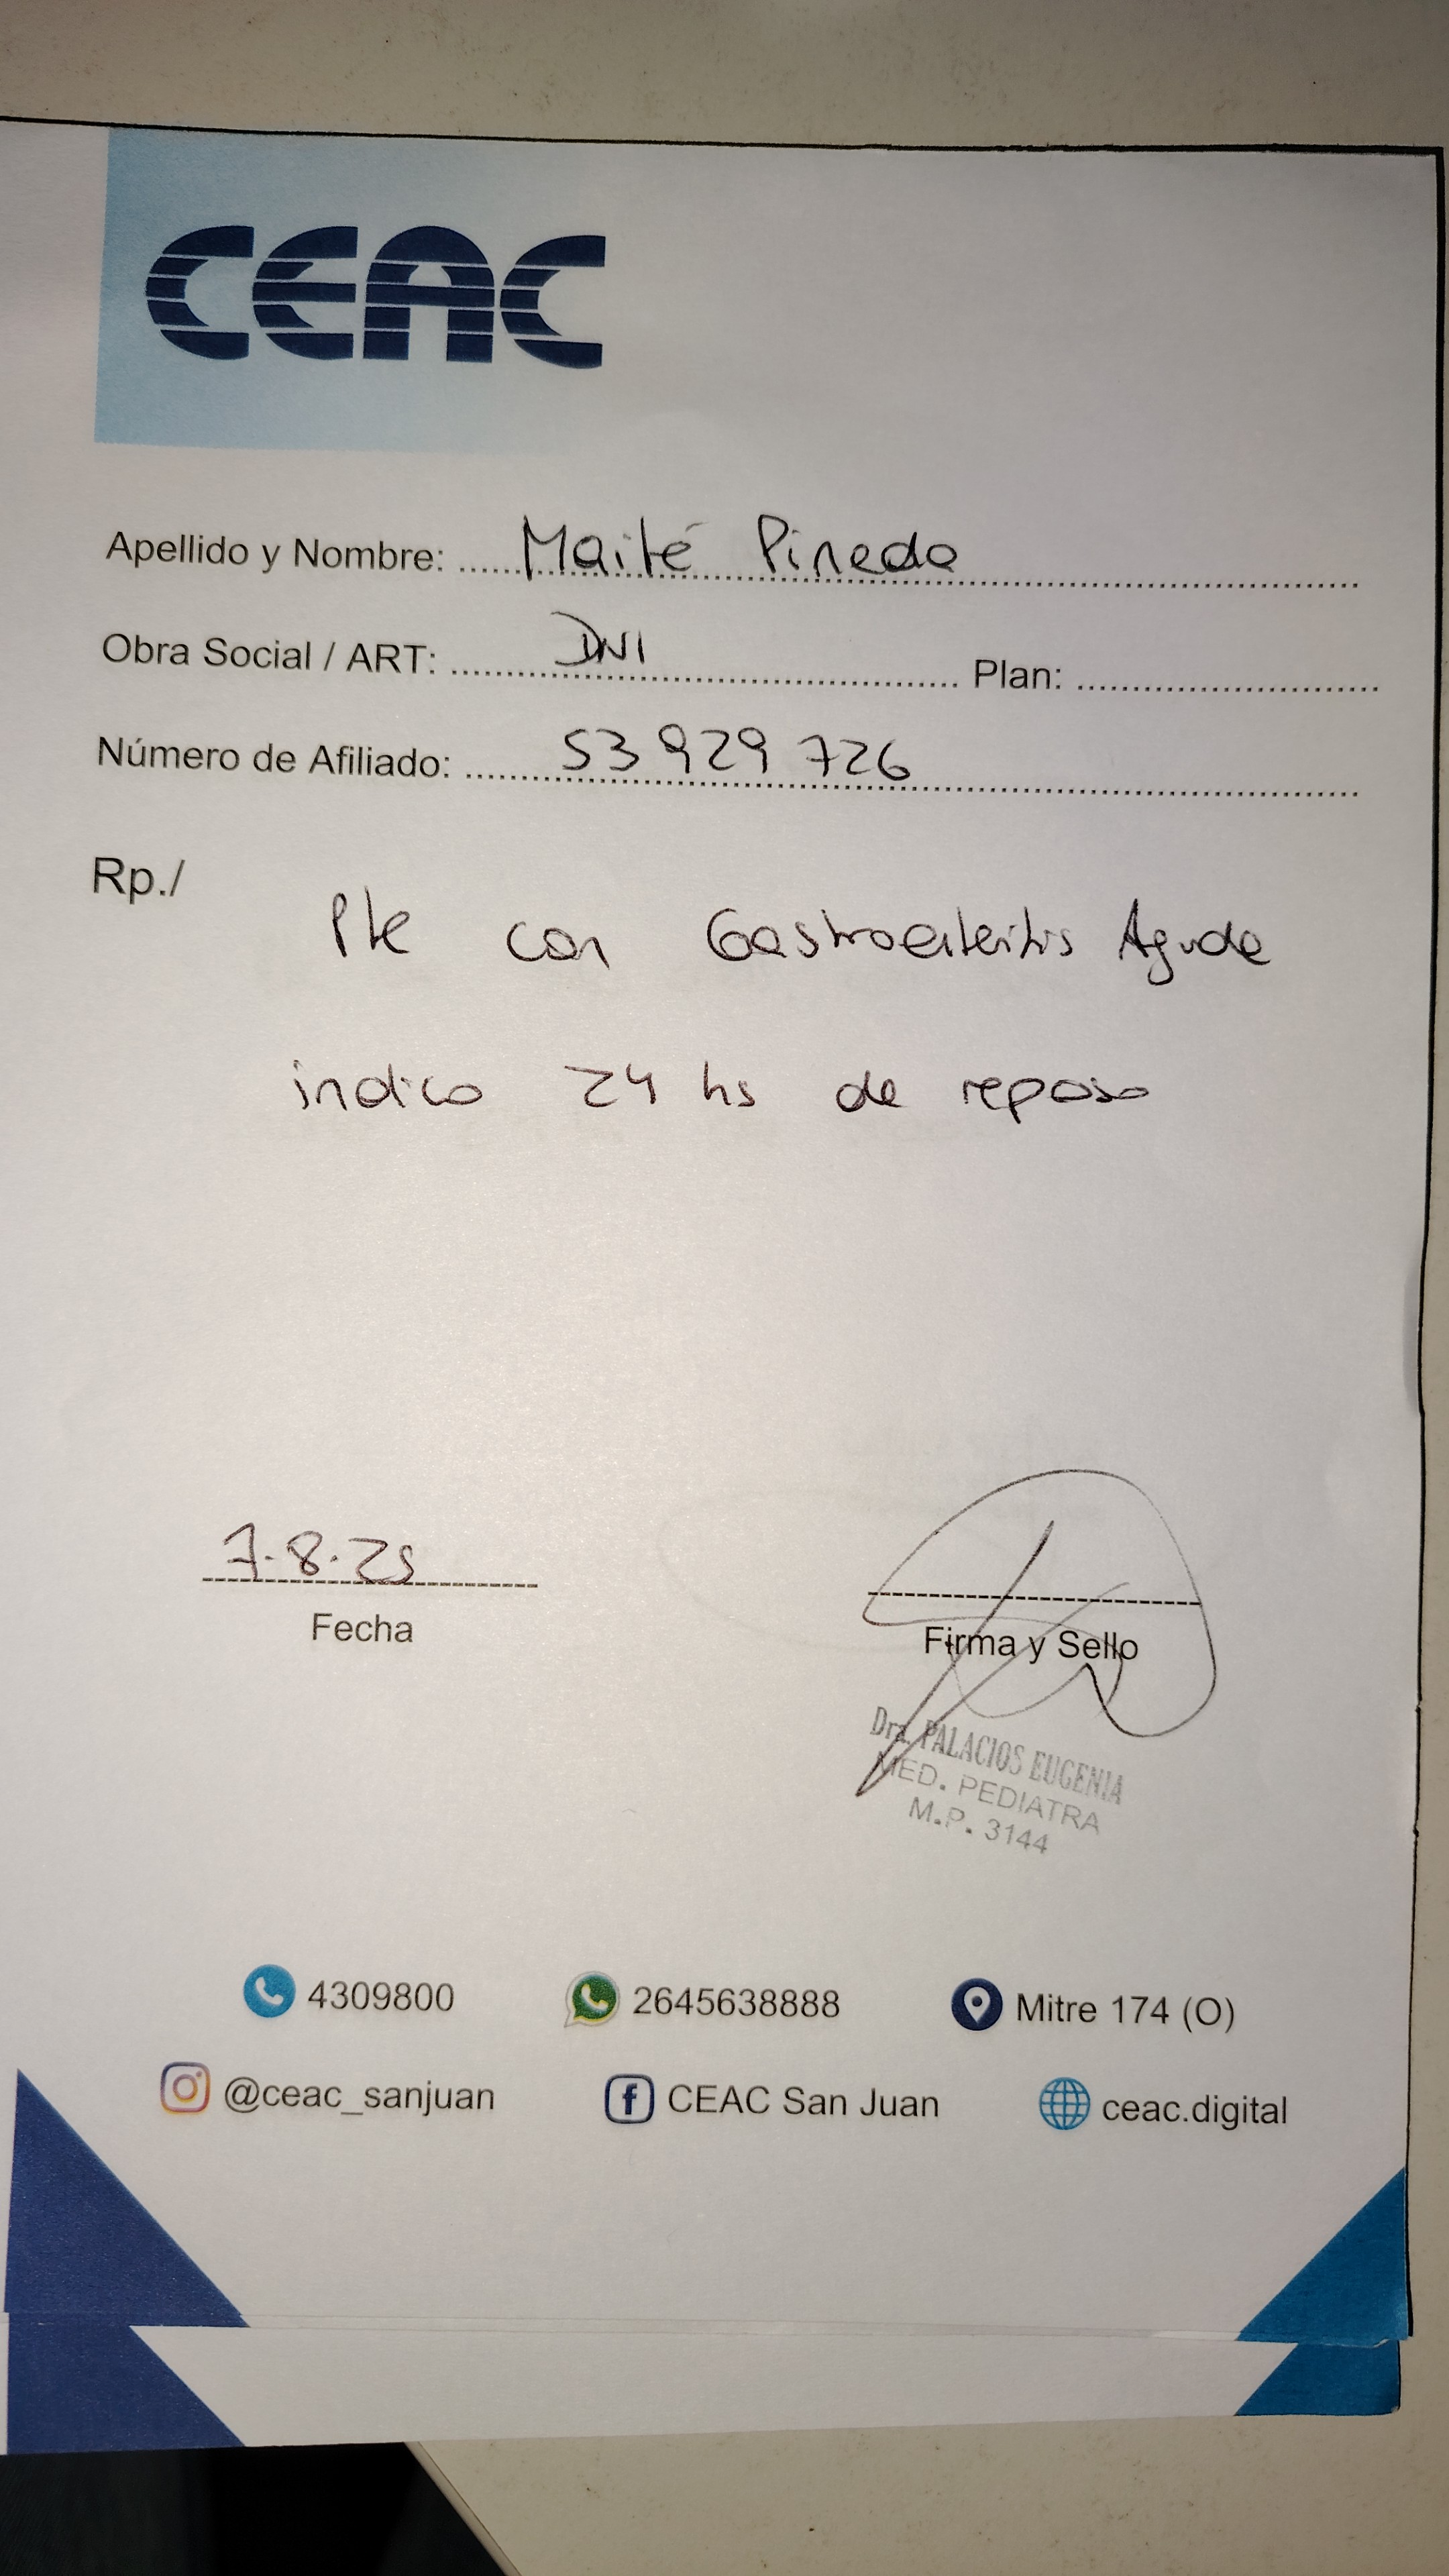 CEAC
Apellido y Nombre: Maité Pineda
Obra Social / ART: DNI Plan:
Número de Afiliado: 53 929 726
Rp./
Pte con Gastroenteritis Aguda
indico 24 hs de reposo
7.8.25
Fecha
Firma y Sello
Dra. PALACIOS EUGENIA
MED. PEDIATRA
M.P. 3144
4309800 2645638888 Mitre 174 (O)
@ceac_sanjuan CEAC San Juan ceac.digital